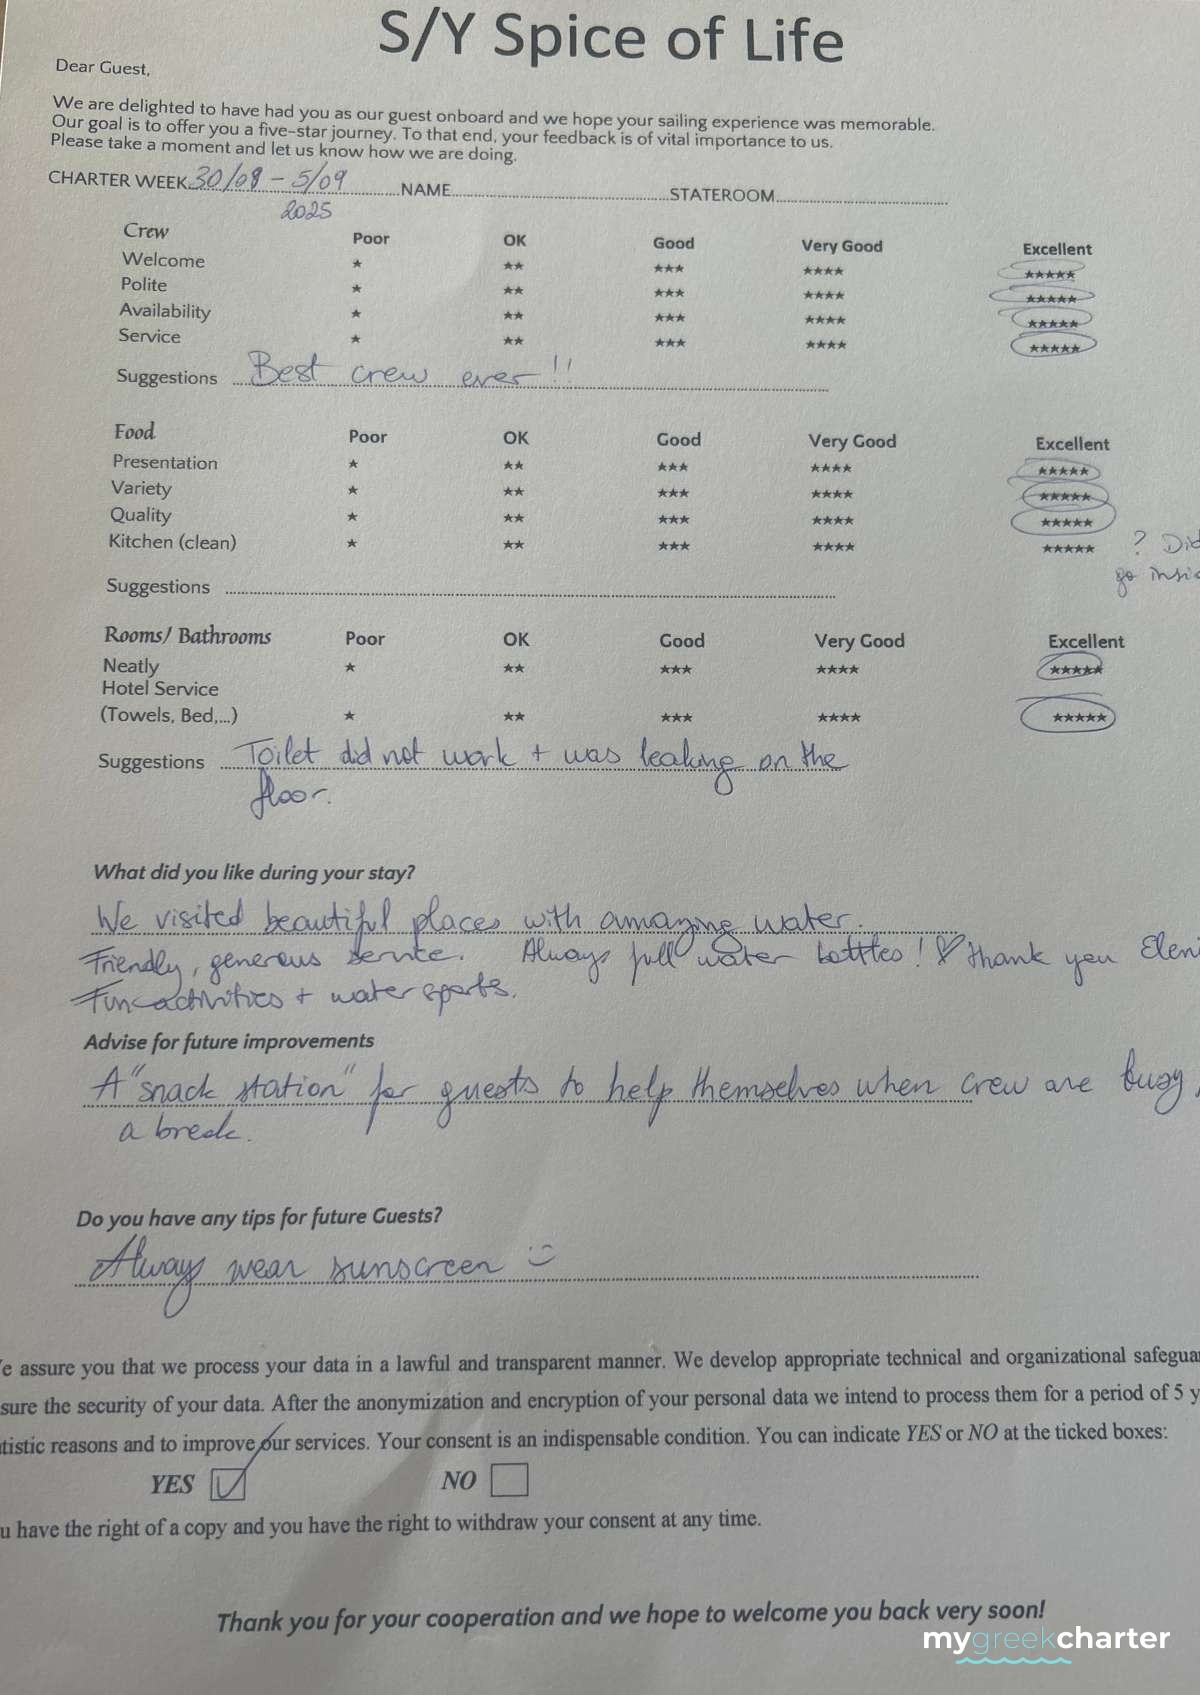 S/Y Spice of Life
Dear Guest,
We are delighted to have had you as our guest onboard and we hope your sailing experience was memorable.
Our goal is to offer you a five-star journey. To that end, your feedback is of vital importance to us.
Please take a moment and let us know how we are doing.
CHARTER WEEK 30/08 - 5/09 NAME STATEROOM
2025
Crew Poor OK Good Very Good Excellent
Welcome ★ ★★ ★★★ ★★★★ ★★★★★
Polite ★ ★★ ★★★ ★★★★ ★★★★★
Availability ★ ★★ ★★★ ★★★★ ★★★★★
Service ★ ★★ ★★★ ★★★★ ★★★★★
Suggestions Best crew ever!!
Food Poor OK Good Very Good Excellent
Presentation ★ ★★ ★★★ ★★★★ ★★★★★
Variety ★ ★★ ★★★ ★★★★ ★★★★★
Quality ★ ★★ ★★★ ★★★★ ★★★★★
Kitchen (clean) ★ ★★ ★★★ ★★★★ ★★★★★ ? Did
go insid
Suggestions
Rooms/ Bathrooms Poor OK Good Very Good Excellent
Neatly ★ ★★ ★★★ ★★★★ ★★★★★
Hotel Service
(Towels, Bed,...) ★ ★★ ★★★ ★★★★ ★★★★★
Suggestions Toilet did not work + was leaking on the
floor.
What did you like during your stay?
We visited beautiful places with amazing water.
Friendly, generous service. Always full water bottles! ♡ Thank you Eleni
Fun activities + water sports.
Advise for future improvements
A "snack station" for guests to help themselves when crew are busy,
a break.
Do you have any tips for future Guests?
Always wear sunscreen :)
e assure you that we process your data in a lawful and transparent manner. We develop appropriate technical and organizational safegua
sure the security of your data. After the anonymization and encryption of your personal data we intend to process them for a period of 5 y
tistic reasons and to improve our services. Your consent is an indispensable condition. You can indicate YES or NO at the ticked boxes:
YES NO
u have the right of a copy and you have the right to withdraw your consent at any time.
Thank you for your cooperation and we hope to welcome you back very soon!
mygreekcharter